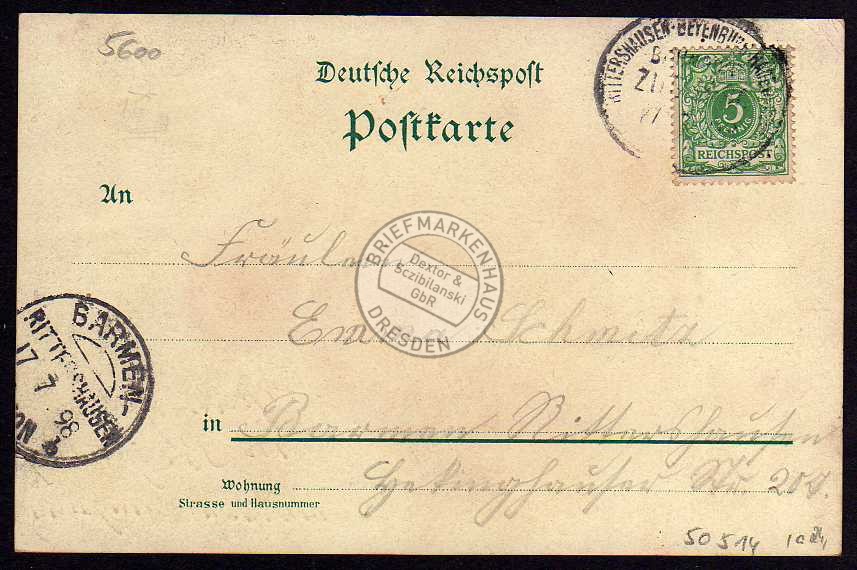 5600
Deutsche Reichspost
Postkarte
RITTERSHAUSEN-BEYENBURG
ZUG
5
PFENNIG
REICHSPOST
An
Fräulein
Emma Schmitz
in Barmen Rittershausen
Wohnung
Strasse und Hausnummer
Str. 20
BARMEN-
RITTERSHAUSEN
17 7 98
BRIEFMARKENHAUS
Dextor &
Sczibilanski
GbR
DRESDEN
50514